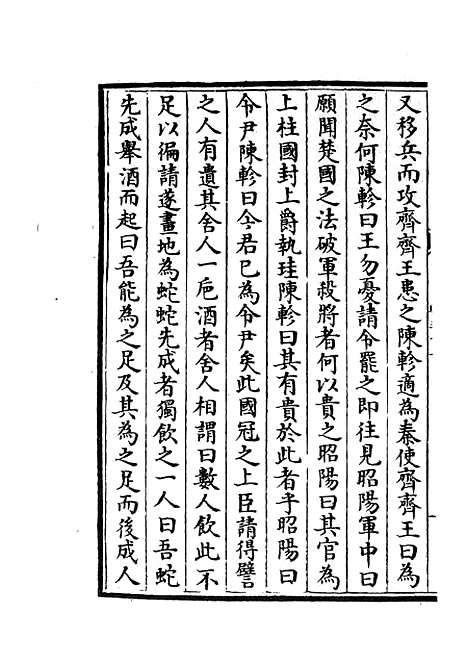 又移兵而攻齊齊王患之陳軫適為秦使齊齊王曰為
之奈何陳軫曰王勿憂請令罷之即往見昭陽軍中曰
願聞楚國之法破軍殺將者何以貴之昭陽曰其官為
上柱國封上爵執珪陳軫曰其有貴於此者乎昭陽曰
令尹陳軫曰今君已為令尹矣此國冠之上臣請得譬
之人有遺其舍人一巵酒者舍人相謂曰數人飲此不
足以徧請遂畫地為蛇蛇先成者獨飲之一人曰吾蛇
先成舉酒而起曰吾能為之足及其為之足而後成人